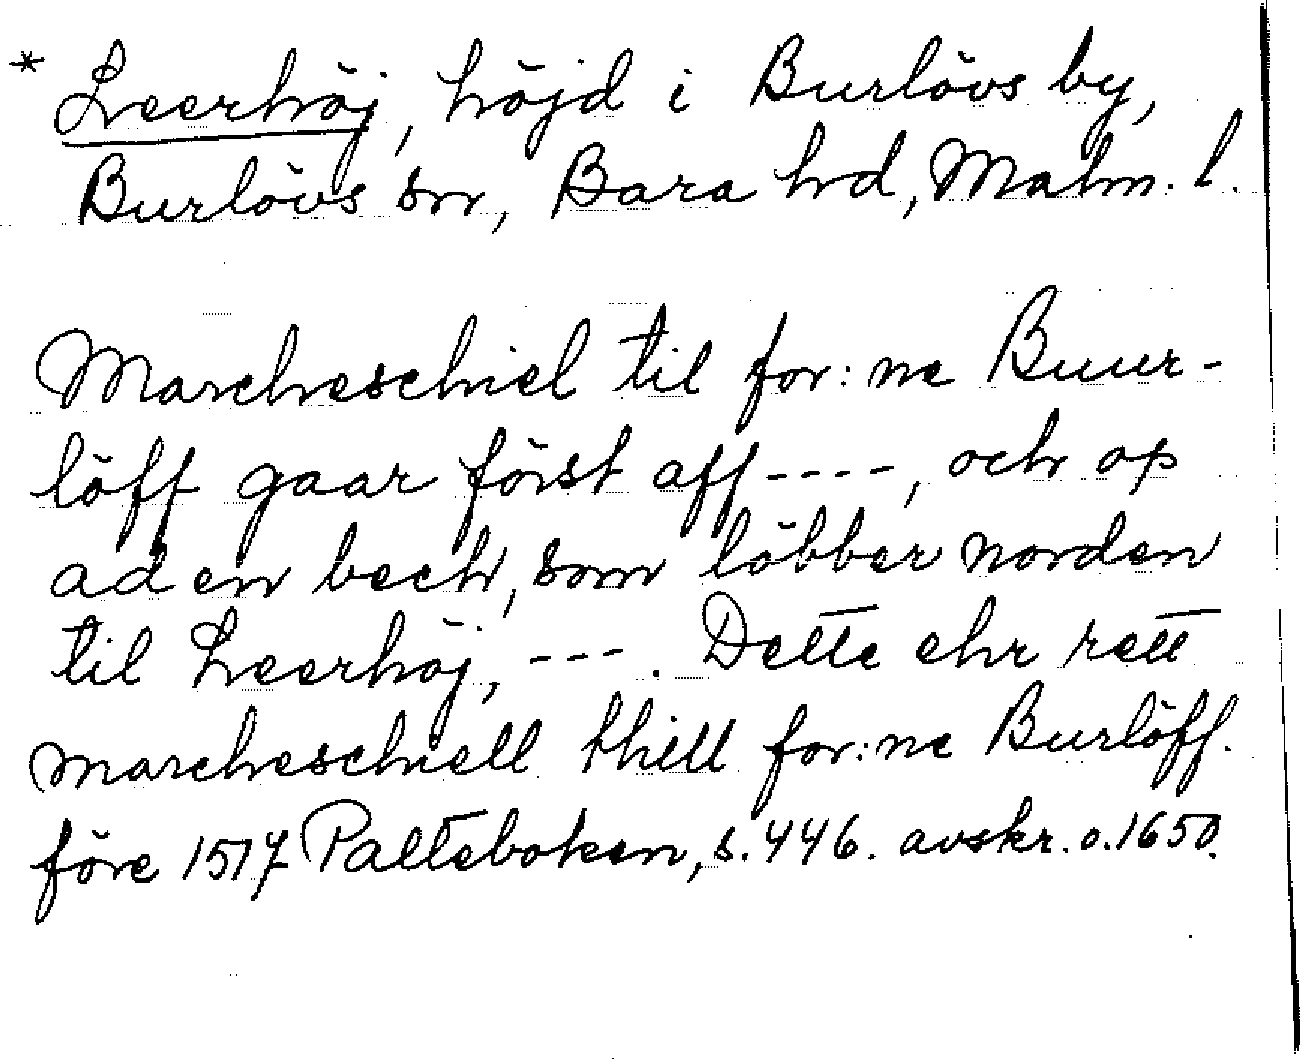 * Leerhöj, höjd i Burlövs by,
Burlövs sn, Bara hd, Malm. l.
Marcheschiel til for:ne Buur-
löff gaar först aff ----, och op
ad en bech, som löbber norden
til Leerhöj, ---. Dette ehr rett
marcheschiell thill for:ne Burlöff.
före 1517 Palteboken, s. 446. avskr. o. 1650.